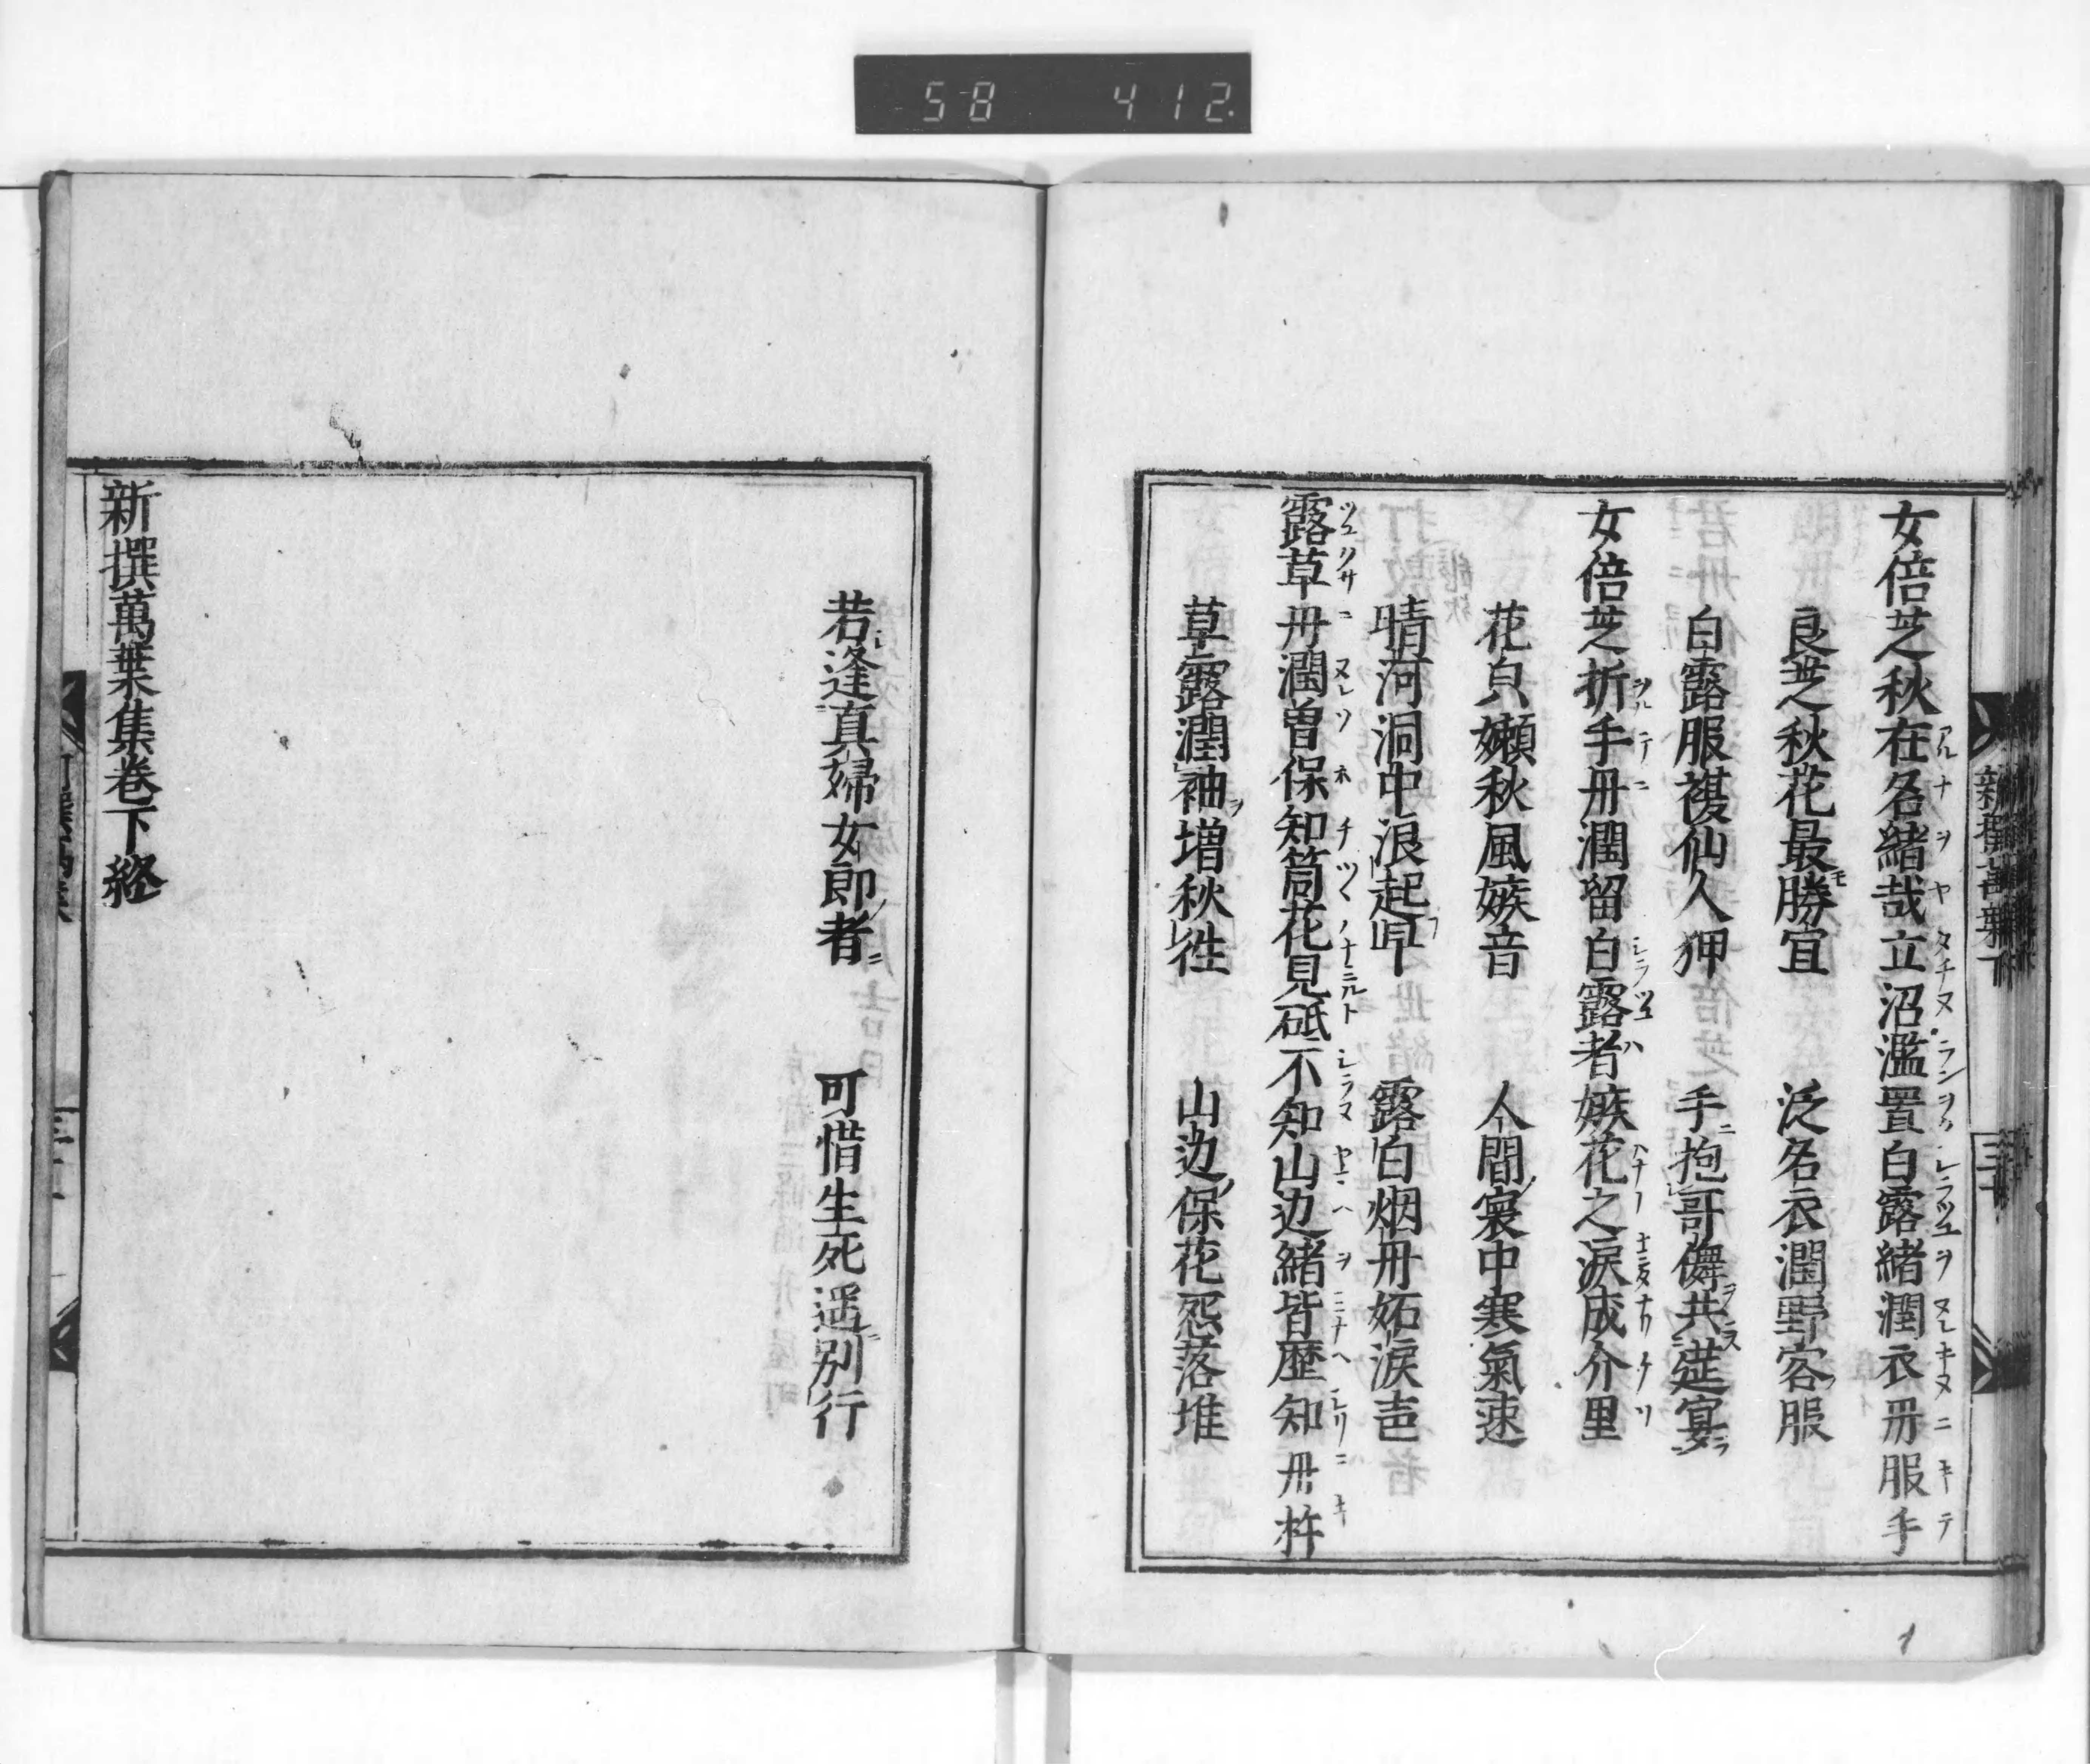 58 412.
女倍芝秋在名緒哉立沼濫置白露緒潤衣丹服手
良芝秋花最勝宜 泛名衣潤野客服
白露服複仙人狎 手抱哥儛共莚宴
女倍芝折手丹潤留白露者嫉花之淚成介里
花㒵嬾秋風嫉音 人間寰中寒氣速
晴河洞中浪起早 露白烟丹妬淚声
露草丹潤曽保知筒花見砥不知山边緒皆歴知丹杵
草露潤袖増秋往 山边保花怨落堆
若逢真婦女郎者 可惜生死遥別行
新撰萬葉集卷下終